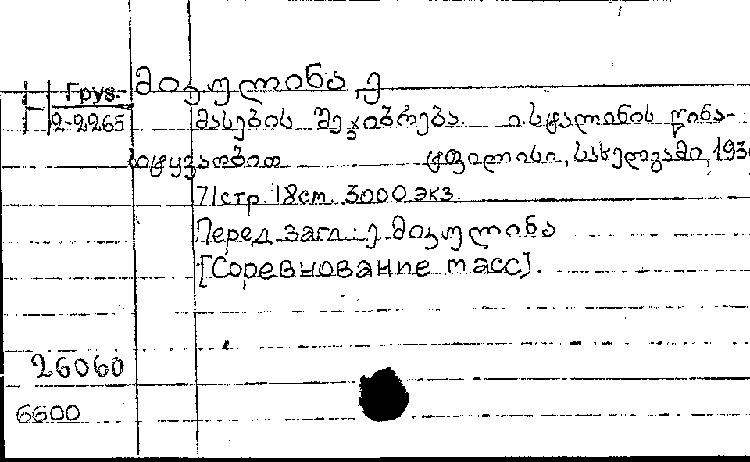 მიკულინა, ე
Груз.
2-2265
მასების შეჯიბრება. ი. სტალინის წინა-
სიტყვაობით ტფილისი, სახელგამი, 193
71 стр. 18 см. 3000 экз.
Перед загл.: ე. მიკულინა
[Соревнование масс].
26060
6600